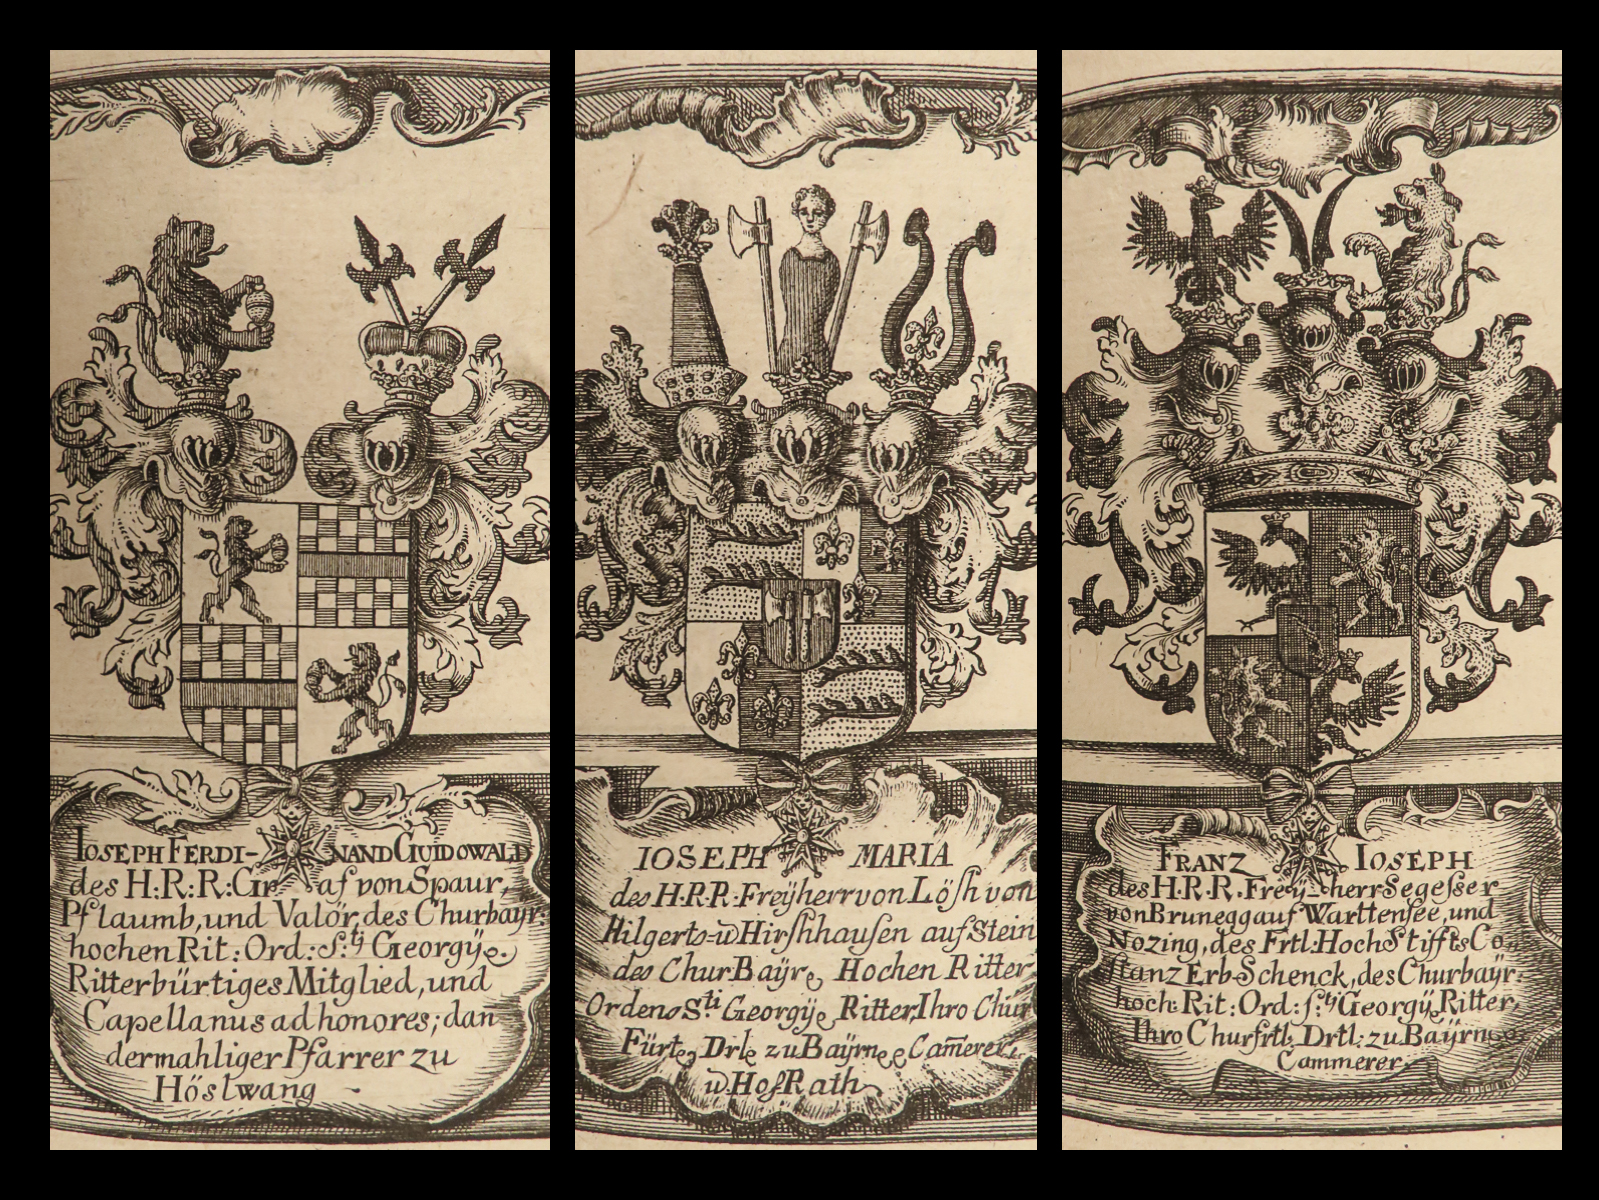 IOSEPH FERDI- NAND GUIDOWALD
des H: R: R: Gr af von Spaur,
Pflaumb, und Valör, des Churbayr:
hochen Rit: Ord: S: tj Georgÿ e.
Ritterbürtiges Mitglied, und
Capellanus ad honores; dan
dermahliger Pfarrer zu
Höslwang -
IOSEPH MARIA
des H. R. R. Freÿherr von Lösh von
Hilgerts- u Hirshhausen auf Stein
des ChurBaÿre Hochen Ritter
Ordens S. ti Georgÿ e Ritter, Ihro Chur
Fürte Drle zu Baÿrn e Cam̄erer,
u HofRath
FRANZ IOSEPH
des H. R. R. Freÿ- herr Segesser
von Brunegg auf Warttensee, und
Nozing, des Frtl: HochStiffts Co
stanz Erb-Schenck, des Churbaÿr:
hoch: Rit: Ord: S: tj Georgÿ Ritter,
Ihro Churfrtl. Drtl: zu Baÿrn
Cammerer.